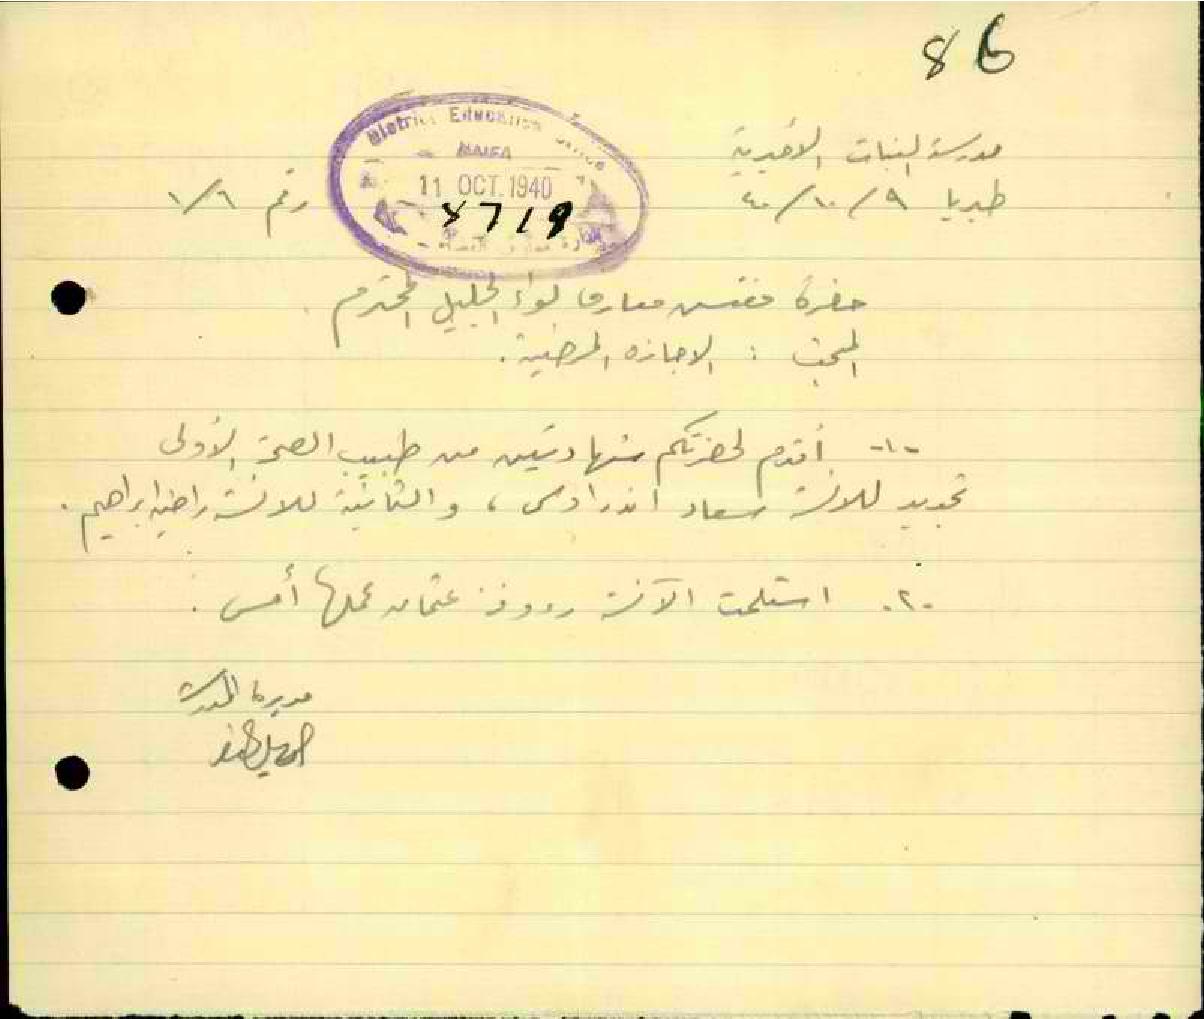 86
مدرسة البنات الأميرية
طبريا ٩/١٠/٤٠
رقم ١/٦
District Education Office
HAIFA
11 OCT. 1940
8719
حضرة مفتش معارف لواء الجليل المحترم
المبحث : الاجازه المرضية .
-١- أقدم لحضرتكم شهادتين من طبيب الصحة الأولى
تجديد للانسة سعاد اندراوس ، والثانية للانسة راضية ابراهيم .
-٢- استلمت الآنسة رووفة عثمان عملها أمس .
مديرة المدرسة